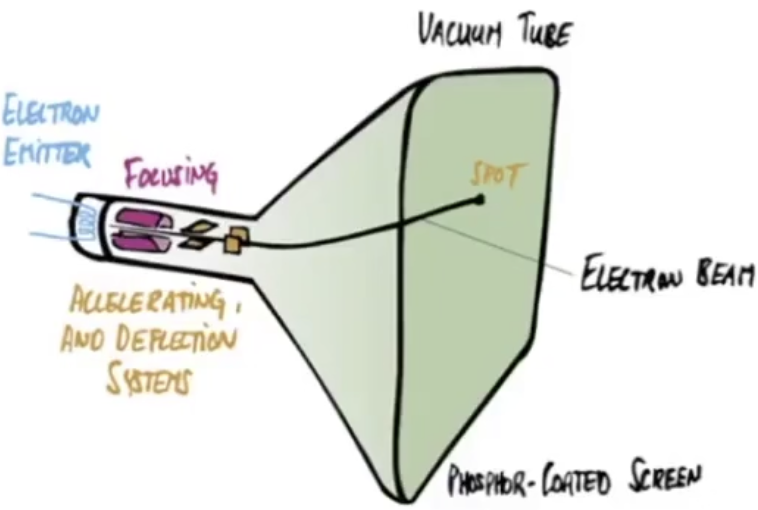 VACUUM TUBE
ELECTRON
EMITTER
FOCUSING
SPOT
ELECTRON BEAM
ACCELERATING,
AND DEFLECTION
SYSTEMS
PHOSPHOR-COATED SCREEN